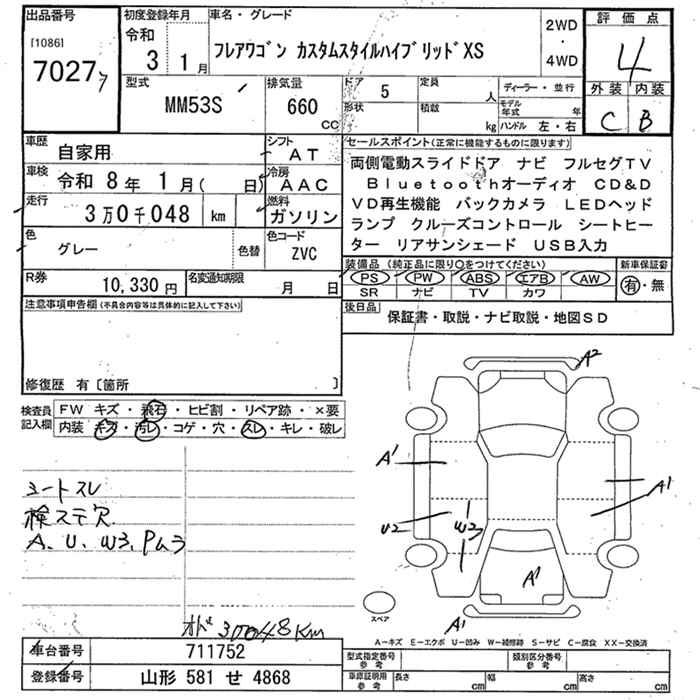 出品番号
[1086]
7027
初度登録年月
令和
3 1月
車名・グレード
フレアワゴン カスタムスタイルハイブリッドXS
2WD
・
4WD
評価点
4
外装 内装
C B
型式
MM53S
排気量
660 CC
ドア 5
形状
定員 人
積載 kg
ディーラー・並行
モデル年式 年
ハンドル 左・右
車歴 自家用
シフト AT
車検 令和 8年 1月( 日)
冷房 AAC
走行 3万0千048 km
燃料 ガソリン
色 グレー 色替
色コード ZVC
R券 10,330円
名変通知期限 月 日
セールスポイント(正常に機能するものに限ります)
両側電動スライドドア ナビ フルセグTV
Bluetoothオーディオ CD&D
VD再生機能 バックカメラ LEDヘッド
ランプ クルーズコントロール シートヒー
ター リアサンシェード USB入力
装備品(純正品に限り○をつけてください)
PS PW ABS エアB AW
SR ナビ TV カワ
新車保証書
有・無
後日品
保証書・取説・ナビ取説・地図SD
注意事項申告欄(不具合内容等は具体的に記入して下さい)
修復歴 有〔箇所 〕
検査員記入欄
FW キズ・飛石・ヒビ割・リペア跡・×要
内装 キズ・汚レ・コゲ・穴・スレ・キレ・破レ
シートスレ
検ステ穴
A、U、W3、Pムラ
オド 30048Km
A2
A1
A1
U2
W3
A1
A1
スペア
A−キズ E−エクボ U−凹み W−補修跡 S−サビ C−腐食 XX−交換済
車台番号 711752
登録番号 山形 581 せ 4868
型式指定番号 参考
類別区分番号 参考
車庫証明用 参考
長さ cm
幅 cm
高さ cm